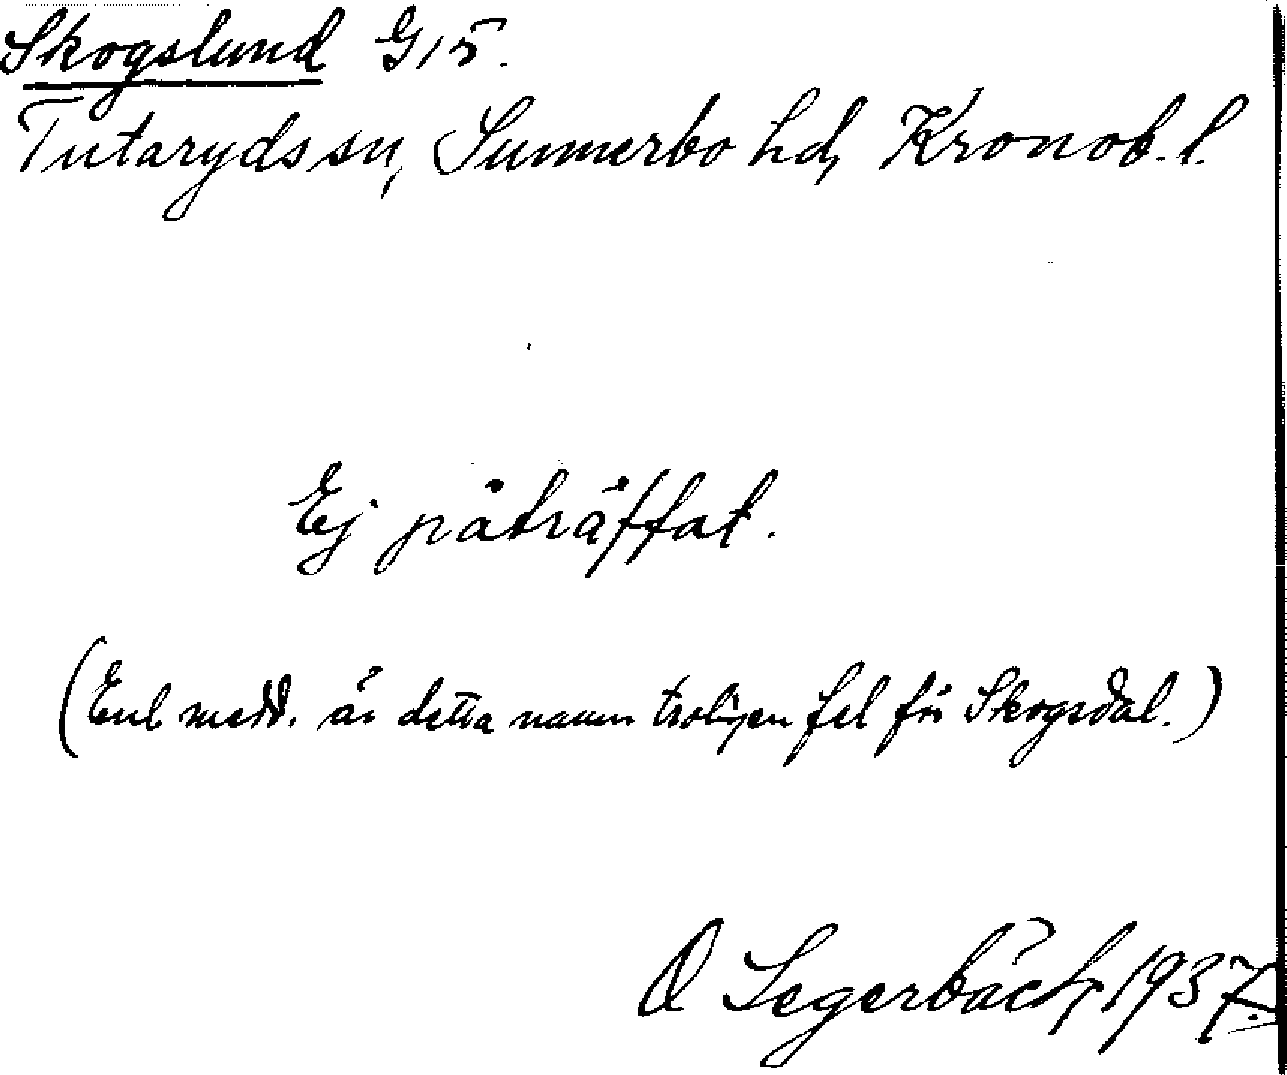 Skogslund G15.
Tutaryds sn, Sunnerbo hd, Kronob. l.
Ej påträffat.
(Enl medd. är detta namn troligen fel för Skogsdal.)
O Segerbäck, 1937.